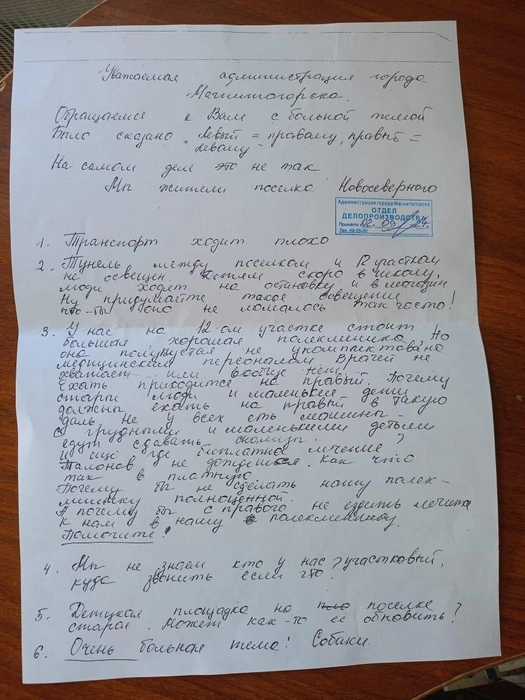 Уважаемая администрация города
Магнитогорска.
Обращаемся к Вам с больной темой
Было сказано "левый = правому, правый =
левому"
На самом деле это не так
Мы жители поселка Новосеверного
Администрация города Магнитогорска
ОТДЕЛ
ДЕЛОПРОИЗВОДСТВА
1. Транспорт ходит плохо
2. Тунель между поселком и 12 участком
не освещен детям скоро в школу,
люди ходят на остановку и в магазин
Ну придумайте такое освещение
что-бы оно не ломалось так часто!
3. У нас на 12-ом участке стоит
большая хорошая поликлиника Но
она полупустая не укомплектована
медицинским персоналом Врачей не
хватает или вообще нет,
Ехать приходится на правый. Почему
старые люди и маленькие дети
должны ехать на правый в такую
даль Не у всех есть машины -
с грудными и маленькими детьми
едут сдавать анализы.
И ещё где бесплатное лечение?
Талонов не дождешься. Как что
так в платную
Почему бы не сделать нашу полик-
линику полноценной.
А почему бы с правого не ездить лечится
к нам в нашу поликлинику.
Помогите!
4. Мы не знаем кто у нас участковый,
куда звонить если что?
5. Детская площадка на поселке
старая. Может как-то её обновить?
6. Очень больная тема! Собаки